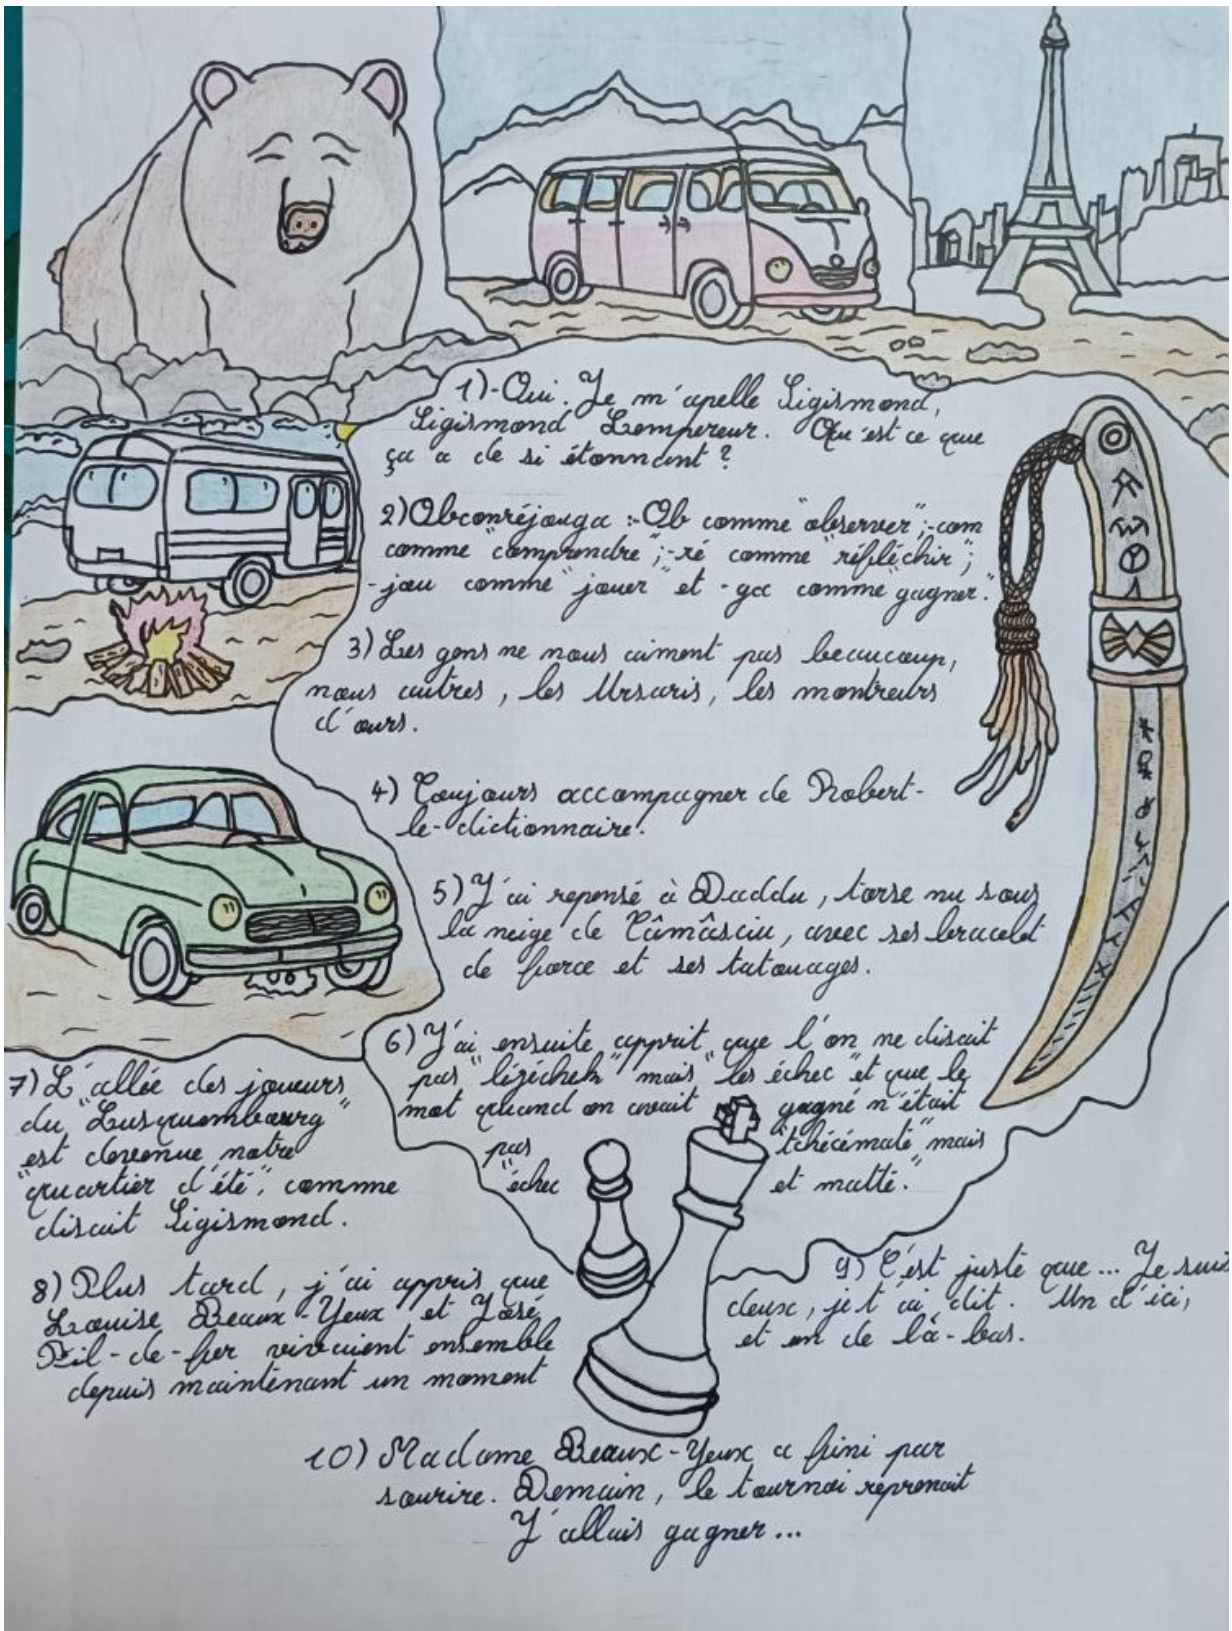 1)-Oui. Je m'apelle Sigismond,
Sigismond Lempereur. Qu'est ce que
ça a de si étonnant ?
2) Obconréjouga :-Ob comme "observer";-com
comme "comprendre";-ré comme "réfléchir";
-jou comme "jouer" et -ga comme "gagner."
3) Les gens ne nous aiment pas beaucoup,
nous autres, les Ursaris, les montreurs
d'ours.
4) Toujours accompagner de Robert-
le-dictionnaire.
5) J'ai repensé à Daddu, torse nu sous
la neige de Tâmâsciu, avec ses bracelet
de force et ses tatouages.
6) J'ai ensuite apprit que l'on ne disait
pas "lézécheh" mais "les échec" et que le
mot quand on avait gagné n'était
pas "tchécémate" mais
"échec et matté."
7) L'allée des joueurs
du "Lusquembourg"
est devenue notre
"quartier d'été", comme
disait Sigismond.
8) Plus tard, j'ai appris que
Louise Beaux-Yeux et José
Fil-de-fer vivaient ensemble
depuis maintenant un moment
9) C'est juste que... Je suis
deux, je t'ai dit. Un d'ici,
et un de là-bas.
10) Madame Beaux-Yeux a fini par
sourire. Demain, le tournoi reprenait
J'allais gagner...